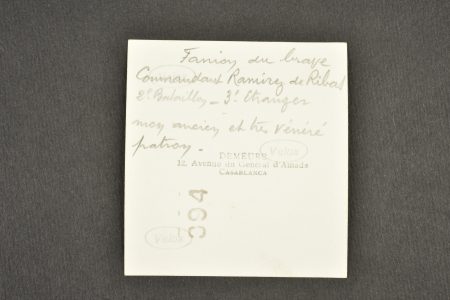 Fanion du brave
Commandant Ramirez de Ribas
2e Bataillon - 3e Etranger
mon ancien et très vénéré
patron -
DEMEURE
12, Avenue du Général d'Amade
CASABLANCA
Velox
394
Velox